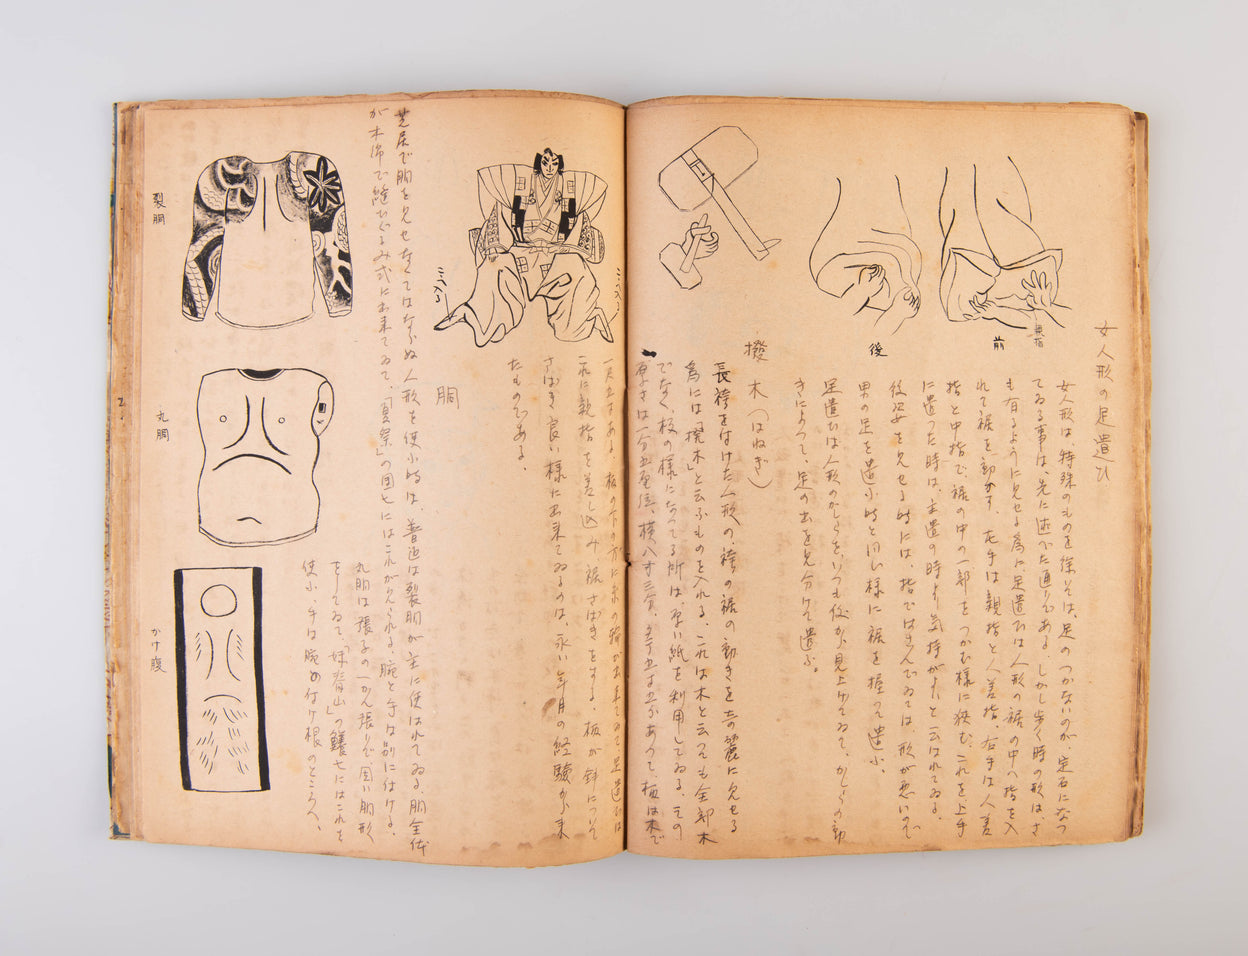 女人形の足遣ひ
親指
前
後
女人形は、特殊のものを徐いては、足のつかないのが、定石になつ
てゐる事は、先に述べた通りである。しかし歩く時の形はさ
も有るように見せる為に足遣ひは人形の裾の中へ指を入
れて裾を動かす、左手は親指と人差指、右手は人差
指と中指で、裾の中の一部をつかむ様に狭む、これを上手
に遣つた時は、主遣の時より気持がよいと云はれてゐる。
後姿を見せる時には、指ではさんでゐては、形が悪いので
男の足を遣ふ時と同じ様に裾を握つて遣ふ。
足遣ひは人形のかしらを、いつも低から見上げてゐて、かしらの動
きによつて、足の出を見分けて遣ふ。
撥木(はねぎ)
長袴をはけた人形の、袴の裾の動きを奇麗に見せる
為には「撥木」と云ふものを入れる。これは木と云つても全部木
でなく、板の様になつてる所は、厚い紙を利用してゐる、その
厚さは一分五厘位、横八寸三分、五寸五分あつて、板は木で
一尺五寸ある、板の下の方に木の輪が出来てゐて、足遣ひは
これに親指を差し込み、裾さばきをする、板が斜につて
さばき良い様に出来てゐるのは、永い年月の経験から来
たものである。
こゝへ入る
こゝへ入る
胴
芝居で胴を見せなくてはならぬ人形を使ふ時は、普通は裂胴が主に使はれてゐる、胴全体
が木綿で縫ひぐるみ式に出来てゐて、「夏祭」の団七にはこれが見られる、腕と手は別に付ける、
丸胴は張子の一かん張りで、固い胴形
をしてゐて、「妹背山」の鱶七にはこれを
使ふ、手は腕の付け根のところへ、
裂胴
丸胴
かけ腹